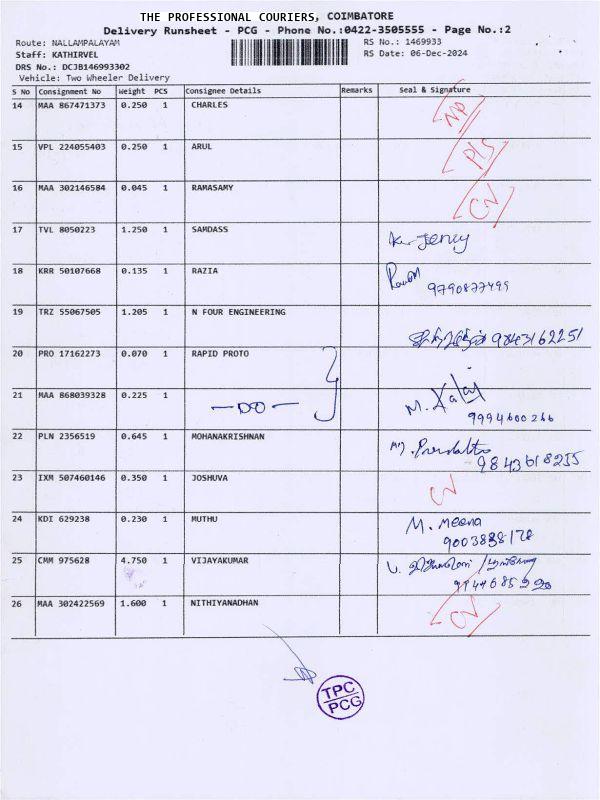 THE PROFESSIONAL COURIERS, COIMBATORE
Delivery Runsheet - PCG - Phone No.:0422-3505555 - Page No.:2
Route: NALLAMPALAYAM
RS No.: 1469933
Staff: KATHIRVEL
RS Date: 06-Dec-2024
DRS No.: DCJB146993302
Vehicle: Two Wheeler Delivery
S No Consignment No Weight PCS Consignee Details Remarks Seal & Signature
14 MAA 867471373 0.250 1 CHARLES
15 VPL 224055403 0.250 1 ARUL
16 MAA 302146584 0.045 1 RAMASAMY
17 TVL 8050223 1.250 1 SAMDASS
18 KRR 50107668 0.135 1 RAZIA
9790877499
19 TRZ 55067505 1.205 1 N FOUR ENGINEERING
9843162251
20 PRO 17162273 0.070 1 RAPID PROTO
21 MAA 868039328 0.225 1 —DO—
M.
9994600266
22 PLN 2356519 0.645 1 MOHANAKRISHNAN
9843618255
23 IXM 507460146 0.350 1 JOSHUVA
24 KDI 629238 0.230 1 MUTHU M. Meena
9003838178
25 CMM 975628 4.750 1 VIJAYAKUMAR
26 MAA 302422569 1.600 1 NITHIYANADHAN
TPC
PCG